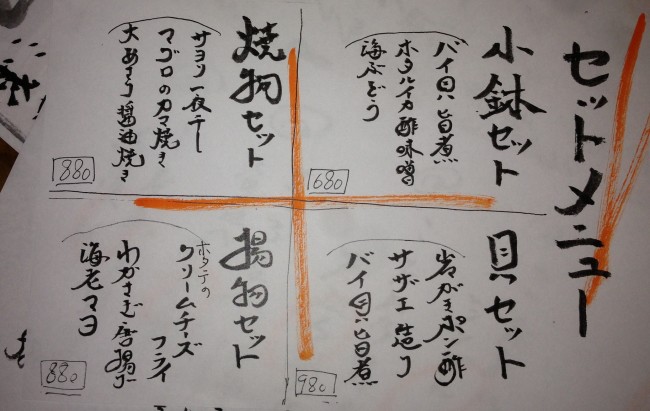 セットメニュー
小鉢セット
バイ貝旨煮
ホタルイカ酢味噌
海ぶどう
680
焼物セット
サヨリ一夜干し
マグロのカマ焼き
大あさり醤油焼き
880
貝セット
岩がきポン酢
サザエ造り
バイ貝旨煮
980
揚物セット
ホタテの
クリームチーズフライ
わかさぎ唐揚げ
海老マヨ
880